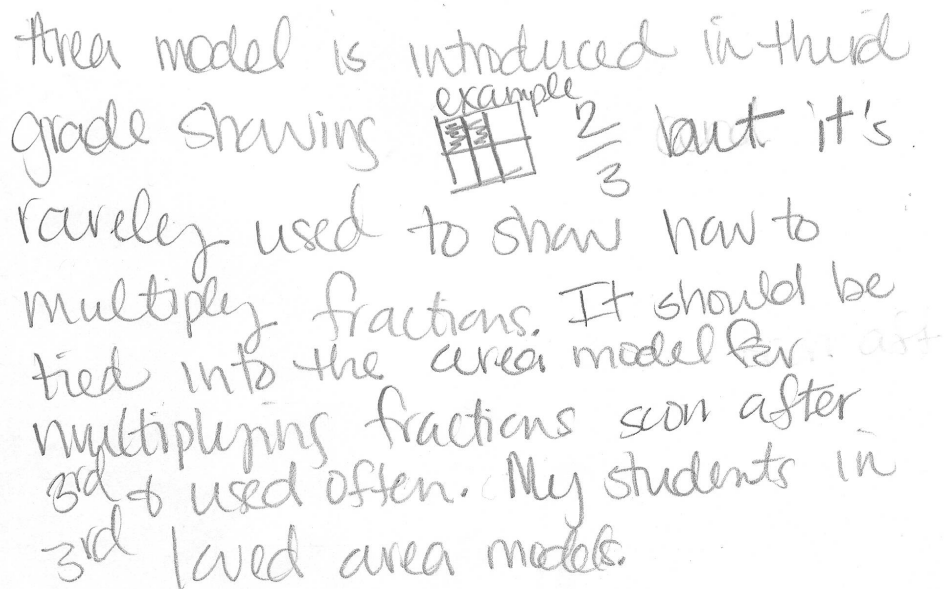 Area model is introduced in third
example
grade showing 2/3 but it's
rarely used to show how to
multiply fractions. It should be
tied into the area model for
multiplying fractions soon after
3rd & used often. My students in
3rd loved area models.